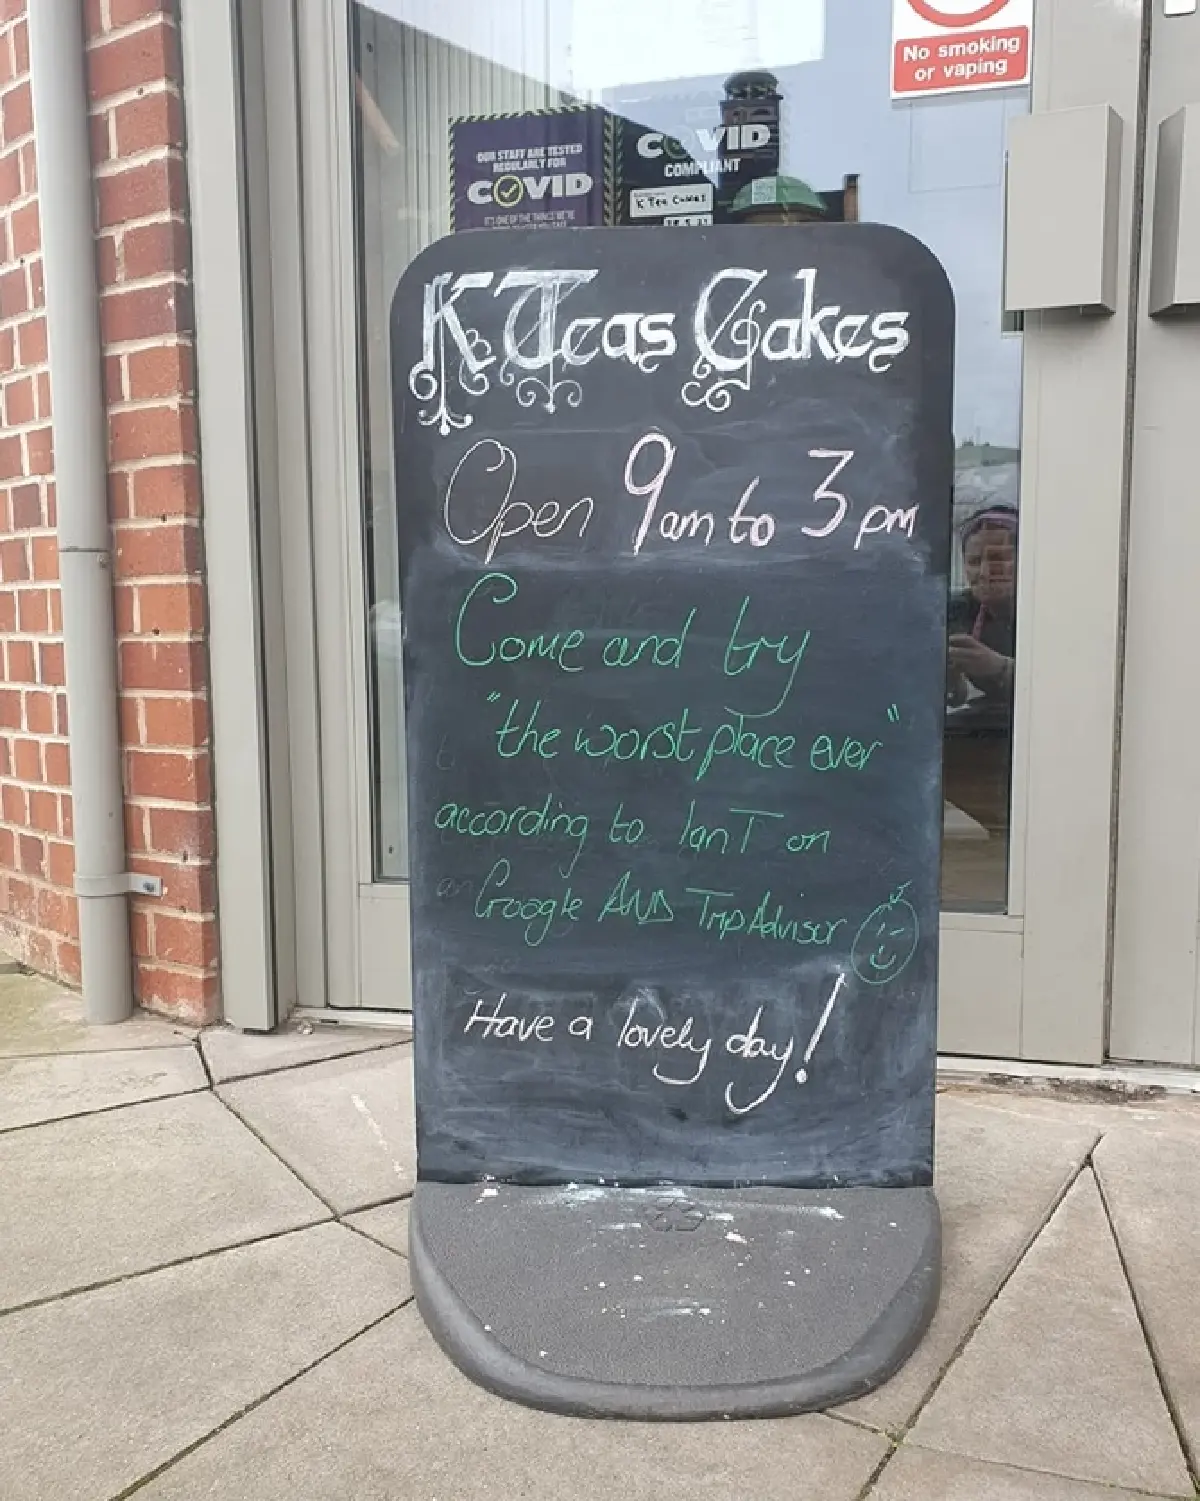 No smoking
or vaping
OUR STAFF ARE TESTED
REGULARLY FOR
COVID
IT'S ONE OF THE THINGS WE'RE
COVID
COMPLIANT
K Tea Cakes
K Teas Cakes
Open 9am to 3pm
Come and try
"the worst place ever"
according to Ian T on
Google AND TripAdvisor
Have a lovely day!